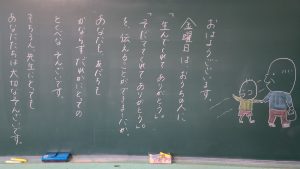 おはようございます。
金曜日は、おうちの人に
「生んでくれて ありがとう。」
「そだててくれて ありがとう。」
を、伝えることができましたか。
あなたも、あなたも
かならず だれかにとっての
とくべつな そんざい。
もちろん 先生にとっても
あなたたちは 大切なそんざいです。